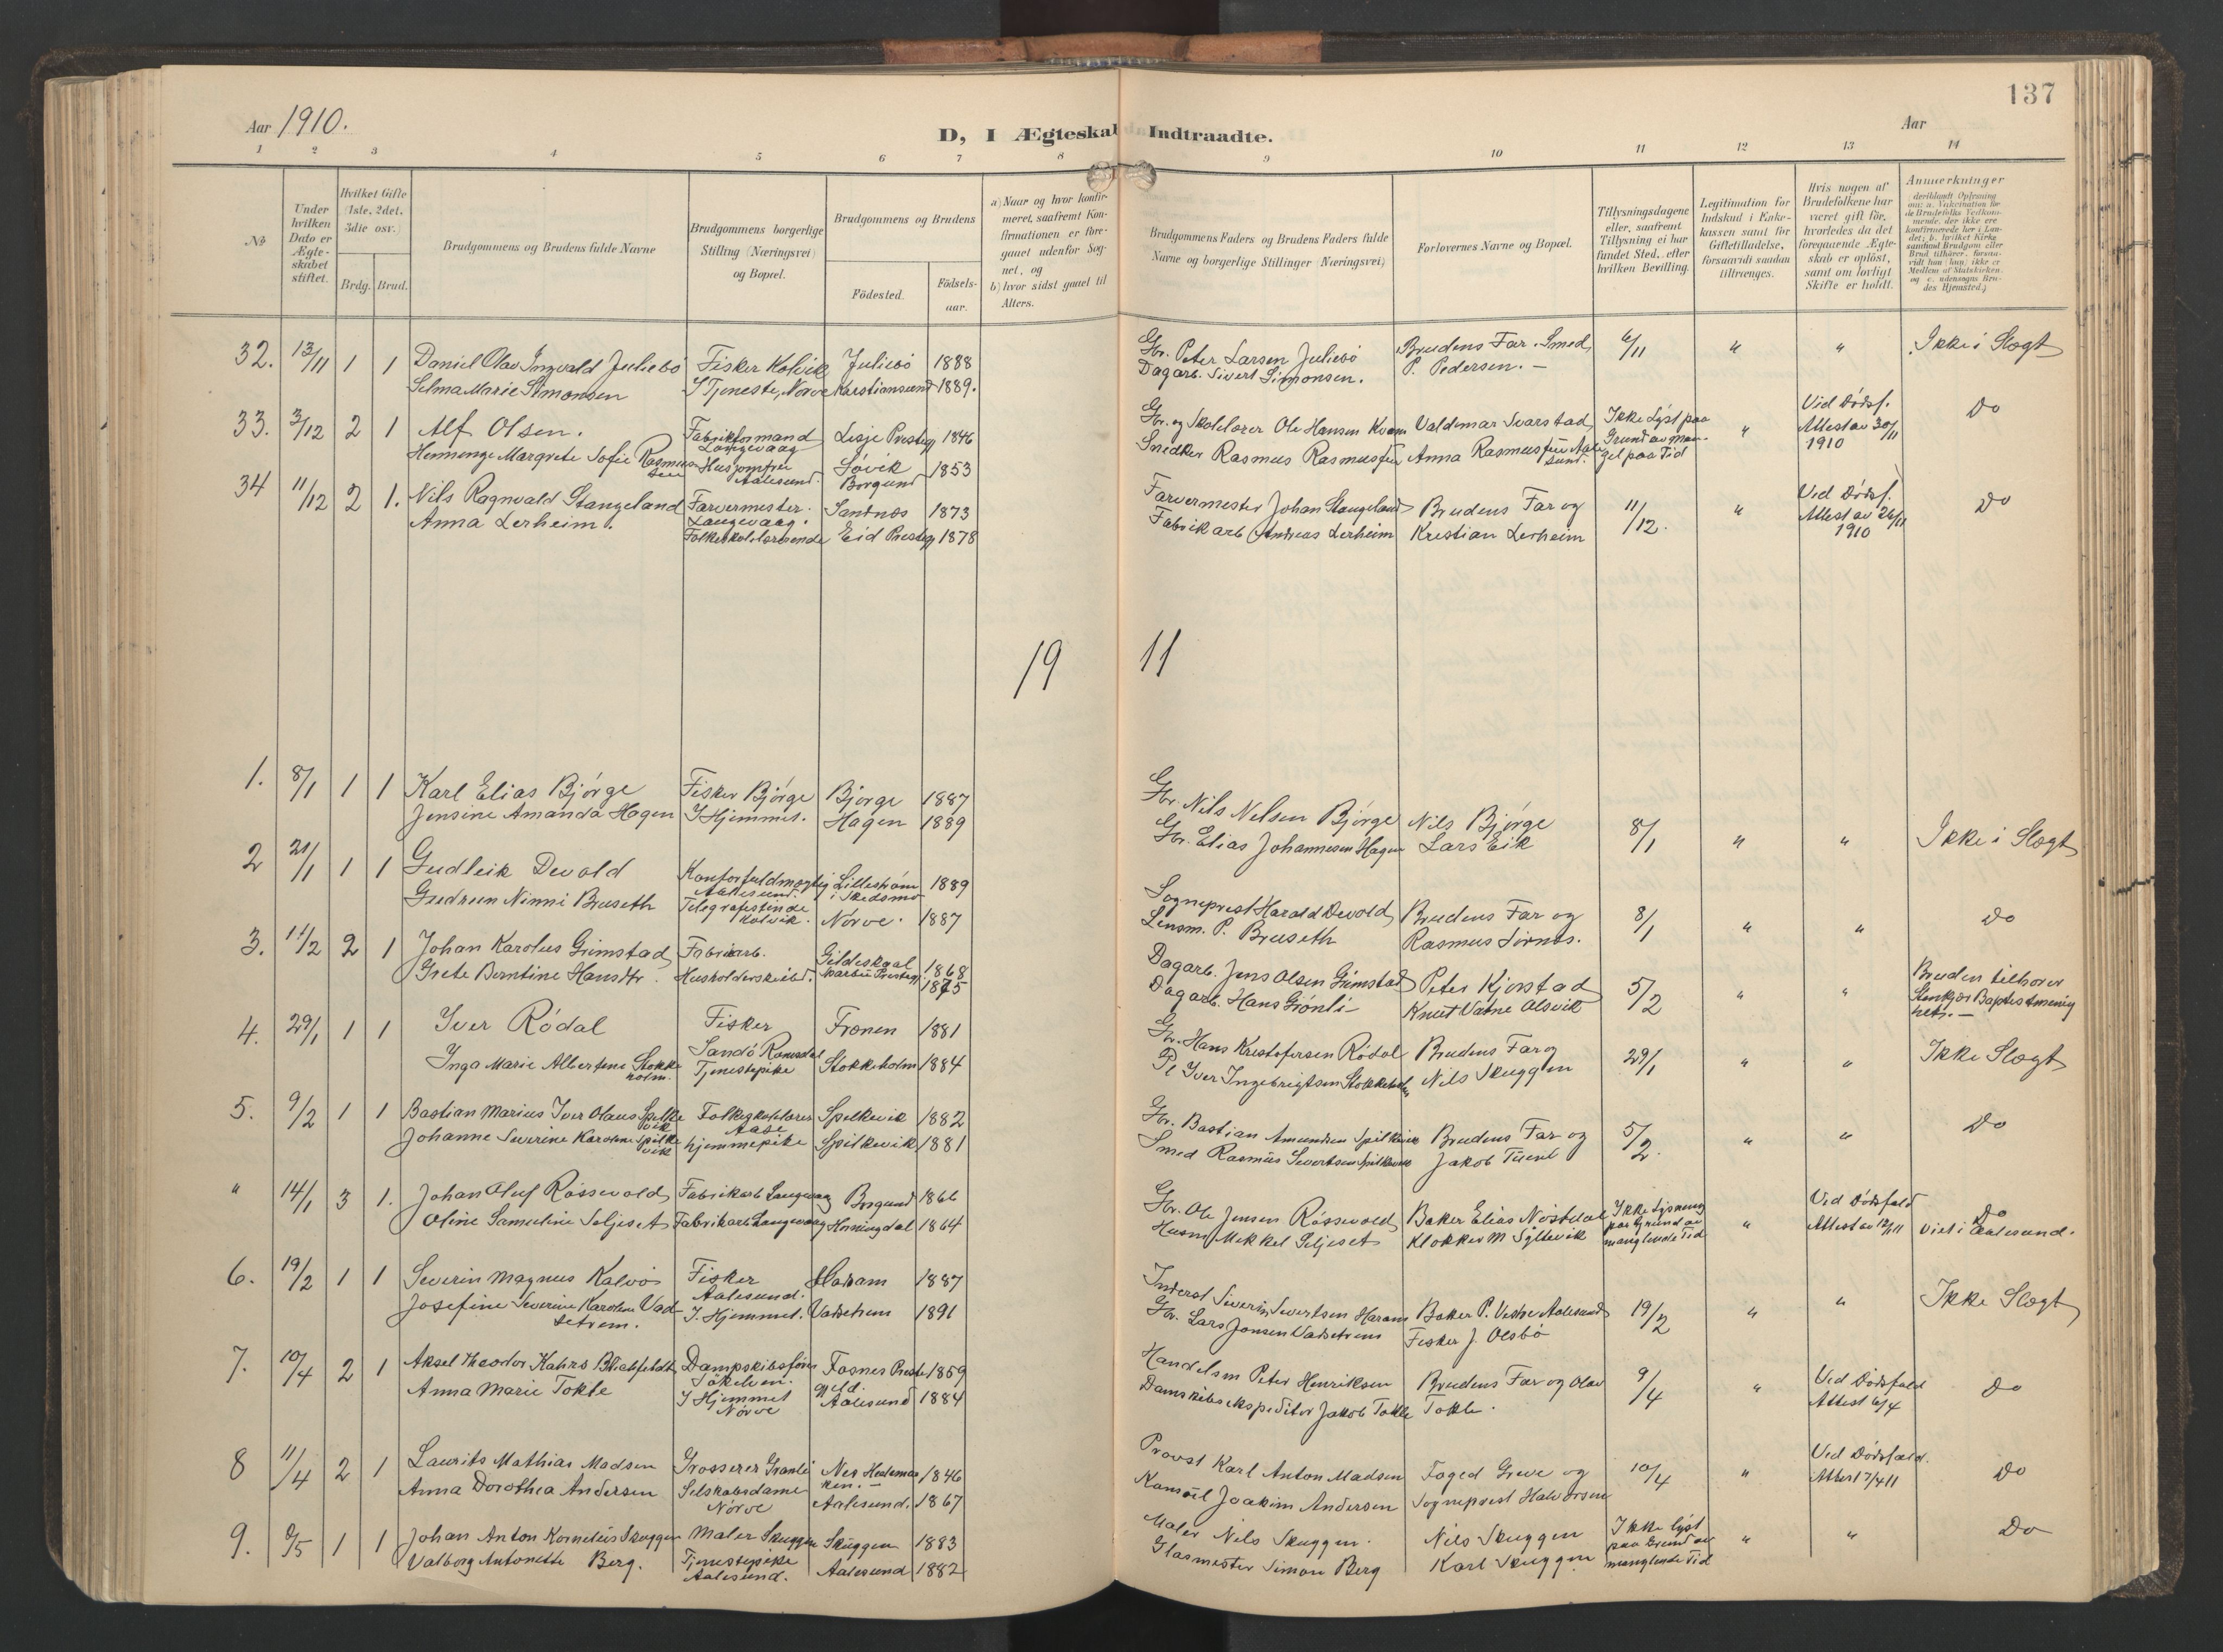 137
Aar 1910.
D, I Ægteskab Indtraadte.
Aar
1 2 3 4 5 6 7 8 9 10 11 12 13 14
№
Under hvilken Dato er Ægteskabet stiftet.
Hvilket Gifte (1ste, 2det, 3die osv.)
Brdg. Brud.
Brudgommens og Brudens fulde Navne
Brudgommens borgerlige Stilling (Næringsvei) og Bopæl.
Brudgommens og Brudens
Fødested.
Fødselsaar.
a) Naar og hvor konfirmeret, saafremt Konfirmationen er foregaaet udenfor Sognet, og
b) hvor sidst gaaet til Alters.
Brudgommens Faders og Brudens Faders fulde Navne og borgerlige Stillinger (Næringsvei)
Forlovernes Navne og Bopæl.
Tillysningsdagene eller, saafremt Tillysning ei har fundet Sted, efter hvilken Bevilling.
Legitimation for Indskud i Enkekassen samt for Giftetilladelse, forsaavidt saadan tiltrænges.
Hvis nogen af Brudefolkene har været gift før, hvorledes da det foregaaende Ægteskab er opløst, samt om lovligt Skifte er holdt.
Anmerkninger
32. 13/11 1 1 Daniel Olav Ingvald Juliebö Fisker Kolvik Juliebö 1888 Gbr. Peter Larsen Juliebö Brudens Far. Smed 6/11 " " Ikke i Slægt
Selma Marie Simonsen I Tjeneste, Nörve Kristianssund 1889. Dagarb. Sivert Simonsen. P. Pedersen. —
33. 3/12 2 1 Alf Olsen. Fabrikformand Langevaag Lesje Prestegj 1846 Gbr. og Skolelærer Ole Hansen Kvam Valdemar Svarstad Ikke Lyst paa Grund av Mangel paa Tid " Ved Dödsf. Attest av 30/11 1910 Do
Henninge Margrete Sofie Rasmussen Husjomfru Aalesund. Sövik Borgund 1853 Snedker Rasmus Rasmussen Anna Rasmussen Aalesund.
34 11/12 2 1. Nils Ragnvald Stangeland Farvermester Langevaag. Sandnæs 1873 Farvermester Johan Stangeland Brudens Far og 11/12. " Ved Dödsf. Attest av 26/11 1910 Do
Anna Lerheim. Folkeskolelærerinde Eid Prestegj 1878 Fabrikarb Andreas Lerheim Kristian Lerheim
19 11
1. 8/1 1 1 Karl Elias Bjørge Fisker Bjørge Bjørge 1887 Gbr. Nils Nelsen Bjørge Nils Bjørge 8/1 " " Ikke i Slægt
Jensine Amanda Hagen I Hjemmet. Hagen 1889 Gbr. Elias Johannesen Hagen Lars Eik
2 21/1 1 1 Gudleik Devold Kontorfuldmægtig Aalesund. Lilleström i Skedsmo 1889 Sogneprest Harald Devold Brudens Far og 8/1 " " Do
Gudrun Ninni Bruseth Telegrafistinde Kolvik. Nörve. 1887 Lensm. P. Bruseth Rasmus
3. 11/2 2 1 Johan Karolus Grimstad Fabrikarb. Gildeskaal 1868 Dagarb. Jens Olsen Grimstad Peter Kjerstad 5/2 " " Bruden tilhører Baptistmenighet. —
Grete Berntine Hansdtr. Husholderske Prestegj 1875 Dagarb. Hans Grönli Knut Vatne Alsvik
4. 29/1 1 1 Iver Rödal Fisker Sandö Romsdal Frænen 1881 Gbr. Hans Kristofersen Rödal Brudens Far og 29/1 " " Ikke Slægt
Inga Marie Albertine Stokkeholm. Tjenestepike Stokkeholm 1884 Pl Iver Ingebrigtsen Stokkeholm Nils Skuggen
5. 9/2 1 1 Bastian Marius Iver Olaus Spilkevik Folkeskolelærer Aase Spilkevik 1882 Gbr. Bastian Amundsen Spilkevik Brudens Far og 5/2. " " Do
Johanne Severine Karoline Spilkevik hjemmepike Spilkevik 1881 Smed Rasmus Sivertsen Spilkevik Jakob Tuent
" 14/1 3 1. Johan Oluf Rössevold Fabrikarb Langevaag Borgund 1866 Gbr. Ole Jensen Rössevold Baker Elias Nöstdal Ikke Lysning paa Grund av manglende Tid " Ved Dödsfald Attest av 12/1 11 Do viet i Aalesund.
Oline Samueline Seljeset Fabrikarb Langevaag Horningdal 1864 Husm Mekkel Seljeset Klokker M Syltevik
6. 19/2 1 1 Severin Magnus Kalvö Fisker Aalesund. Haram 1887 Inderst Siverin Sivertsen Haram Baker P. Vestre Aalesund 19/2 " " Ikke Slægt
Josefine Severine Karoline Vadsetrem. I. Hjemmet. Vadsetrem 1891 Gbr. Lars Jonsen Vadsetrem Fisker J. Olsbö
7. 10/4 2 1 Aksel Theodor Kahrs Blichfeldt Dampskibsförer Sökelven. Fosnes Prestegjeld. 1859 Handelsm Peter Henriksen Brudens Far og Olav 9/4 " Ved Dödsfald Attest 6/4 Do
Anna Marie Tokle I Hjemmet Nörve Aalesund 1884 Damskibsekspeditør Jakob Tokle Tokle.
8 11/4 2 1 Laurits Mathias Madsen Grosserer Granli Nes Hedemarken. — 1846 Provst Karl Anton Madsen Foged Greve og 10/4 " Ved Dödsfald. Attest 7/4 11 Do
Anna Dorothea Andersen Selskabsdame Nörve Aalesund. 1867 Joakim Andersen Sogneprest Halvorsen
9. 9/5 1 1 Johan Anton Kornelius Skuggen Maler Skuggen Skuggen 1883 Maler Nils Skuggen. Nils Skuggen Ikke lyst paa Grund av manglende Tid " " Do
Valborg Antonette Berg. Tjenestepike Aalesund. Aalesund 1882 Glasmester Simon Berg Karl Skuggen